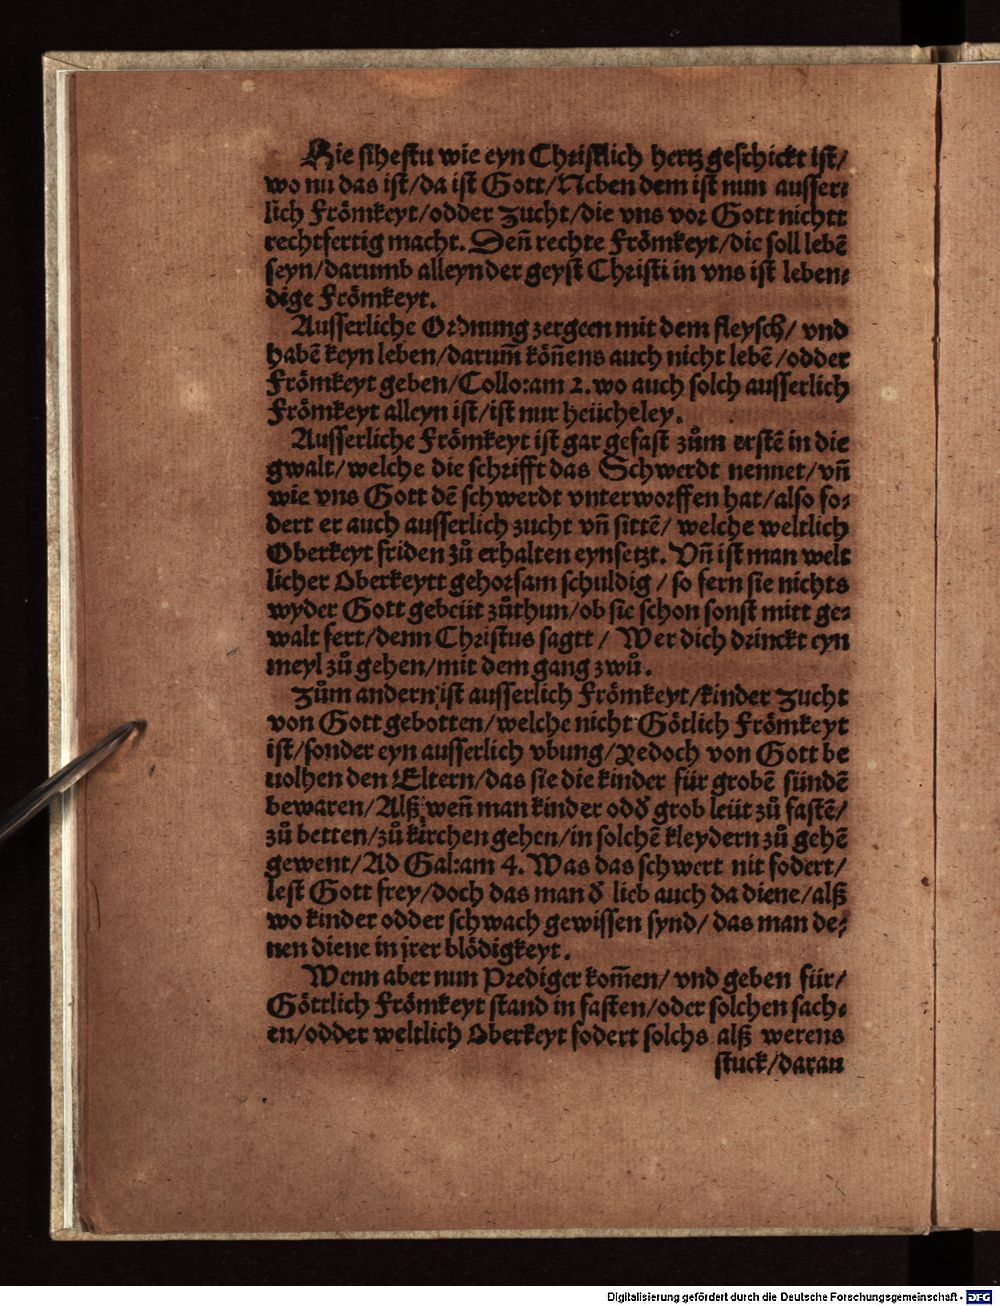 Hie sihestu wie eyn Christlich hertz geschickt ist/
wo nu das ist/da ist Gott/Neben dem ist nun ausser⸗
lich Frömkeyt/odder zucht/die vns vor Gott nichtt
rechtfertig macht. Deñ rechte Frömkeyt/die soll lebẽ
seyn/darumb alleyn der geyst Christi in vns ist leben⸗
dige Frömkeyt.
Ausserliche Ordnung zergeen mit dem fleysch/ vnd
habẽ keyn leben/darum̃ köñens auch nicht lebẽ/odder
Frömkeyt geben/Collo:am 2. wo auch solch ausserlich
Frömkeyt alleyn ist/ist nur heücheley.
Ausserliche Frömkeyt ist gar gefast zům erstẽ in die
gwalt/welche die schrifft das Schwerdt nennet/vñ
wie vns Gott dẽ schwerdt vnterworffen hat/also fo⸗
dert er auch ausserlich zucht vñ sittẽ/ welche weltlich
Oberkeyt friden zů erhalten eynsetzt. Vñ ist man welt
licher Oberkeytt gehorsam schuldig / so fern sie nichts
wyder Gott gebeüt zůthun/ob sie schon sonst mitt ge⸗
walt fert/denn Christus sagtt / Wer dich drinckt eyn
meyl zů gehen/mit dem gang zwů.
Zům andern ist ausserlich Frömkeyt/kinder zucht
von Gott gebotten/welche nicht Götlich Frömkeyt
ist/sonder eyn ausserlich vbung/Yedoch von Gott be
uolhen den Eltern/das sie die kinder für grobẽ sündẽ
bewaren/Alß weñ man kinder odd̕ grob leüt zů fastẽ/
zů betten/zů kirchen gehen/in solchẽ kleydern zů gehẽ
gewent/Ad Gal:am 4. Was das schwert nit fodert/
lest Gott frey/doch das man d̕ lieb auch da diene/alß
wo kinder odder schwach gewissen synd/ das man de⸗
nen diene in jrer blödigkeyt.
Wenn aber nun Prediger kom̃en/ vnd geben für/
Göttlich Frömkeyt stand in fasten/oder solchen sach⸗
en/odder weltlich Oberkeyt fodert solchs alß werens
stuck/daran
Digitalisierung gefördert durch die Deutsche Forschungsgemeinschaft - DFG